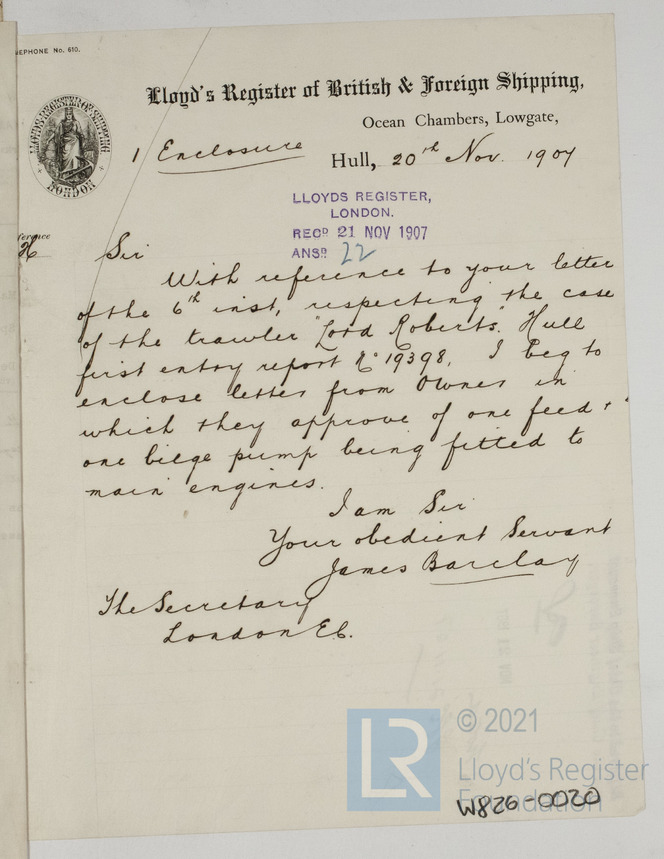 EPHONE No. 610.
Lloyd's Register of British & Foreign Shipping,
Ocean Chambers, Lowgate,
1 Enclosure
Hull, 20th Nov. 1907
LONDON
LLOYDS REGISTER,
LONDON.
RECD 21 NOV 1907
ANSD 22
ference
H
Sir
With reference to your letter
of the 6th inst, respecting the case
of the trawler "Lord Roberts". Hull
first entry report No 19398, I beg to
enclose letter from Owner in
which they approve of one feed +
one bilge pump being fitted to
main engines.
I am Sir
Your obedient Servant
James Barclay
The Secretary
London E.C.
LR
© 2021
Lloyd's Register
Foundation
W826-0020